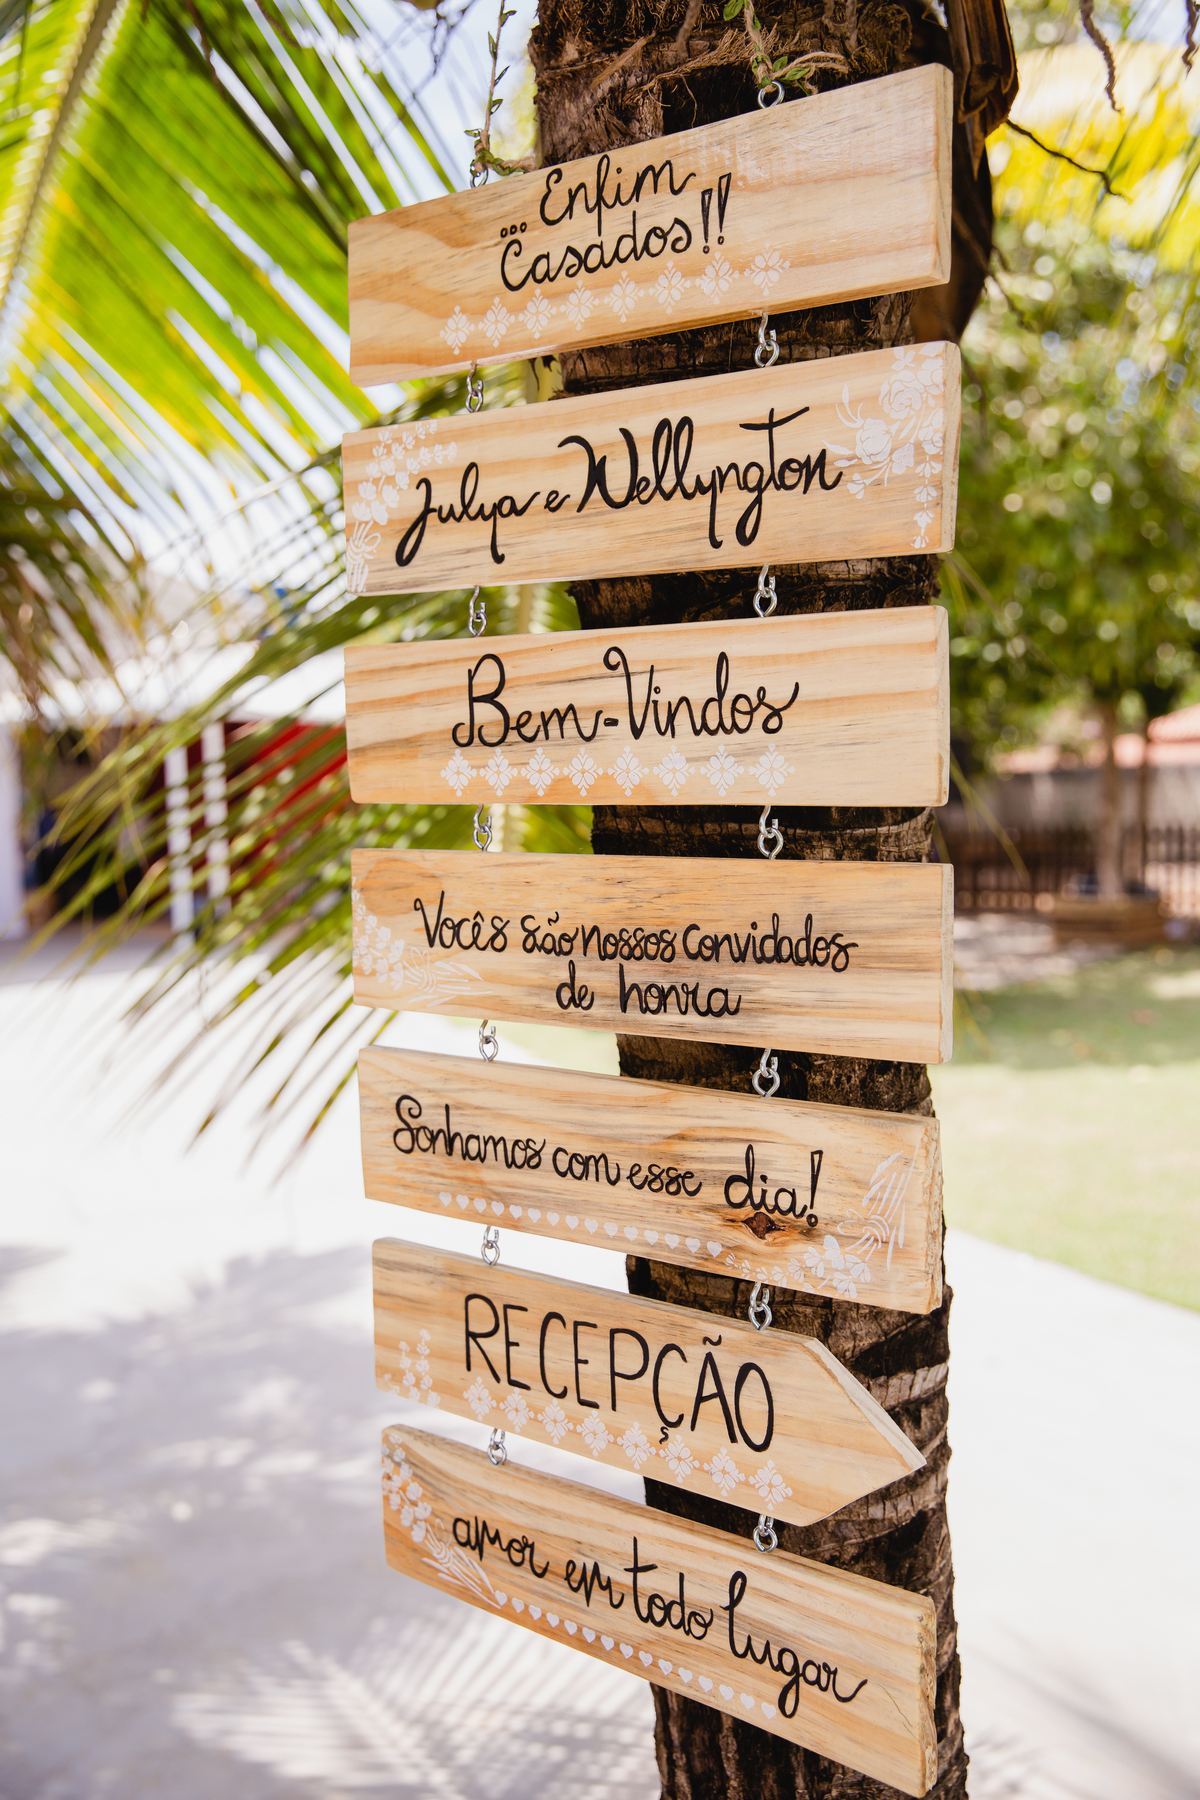 ... Enfim
Casados!!
Julya e Wellyngton
Bem-Vindos
Vocês são nossos convidados
de honra
Sonhamos com esse dia!
RECEPÇÃO
amor em todo lugar